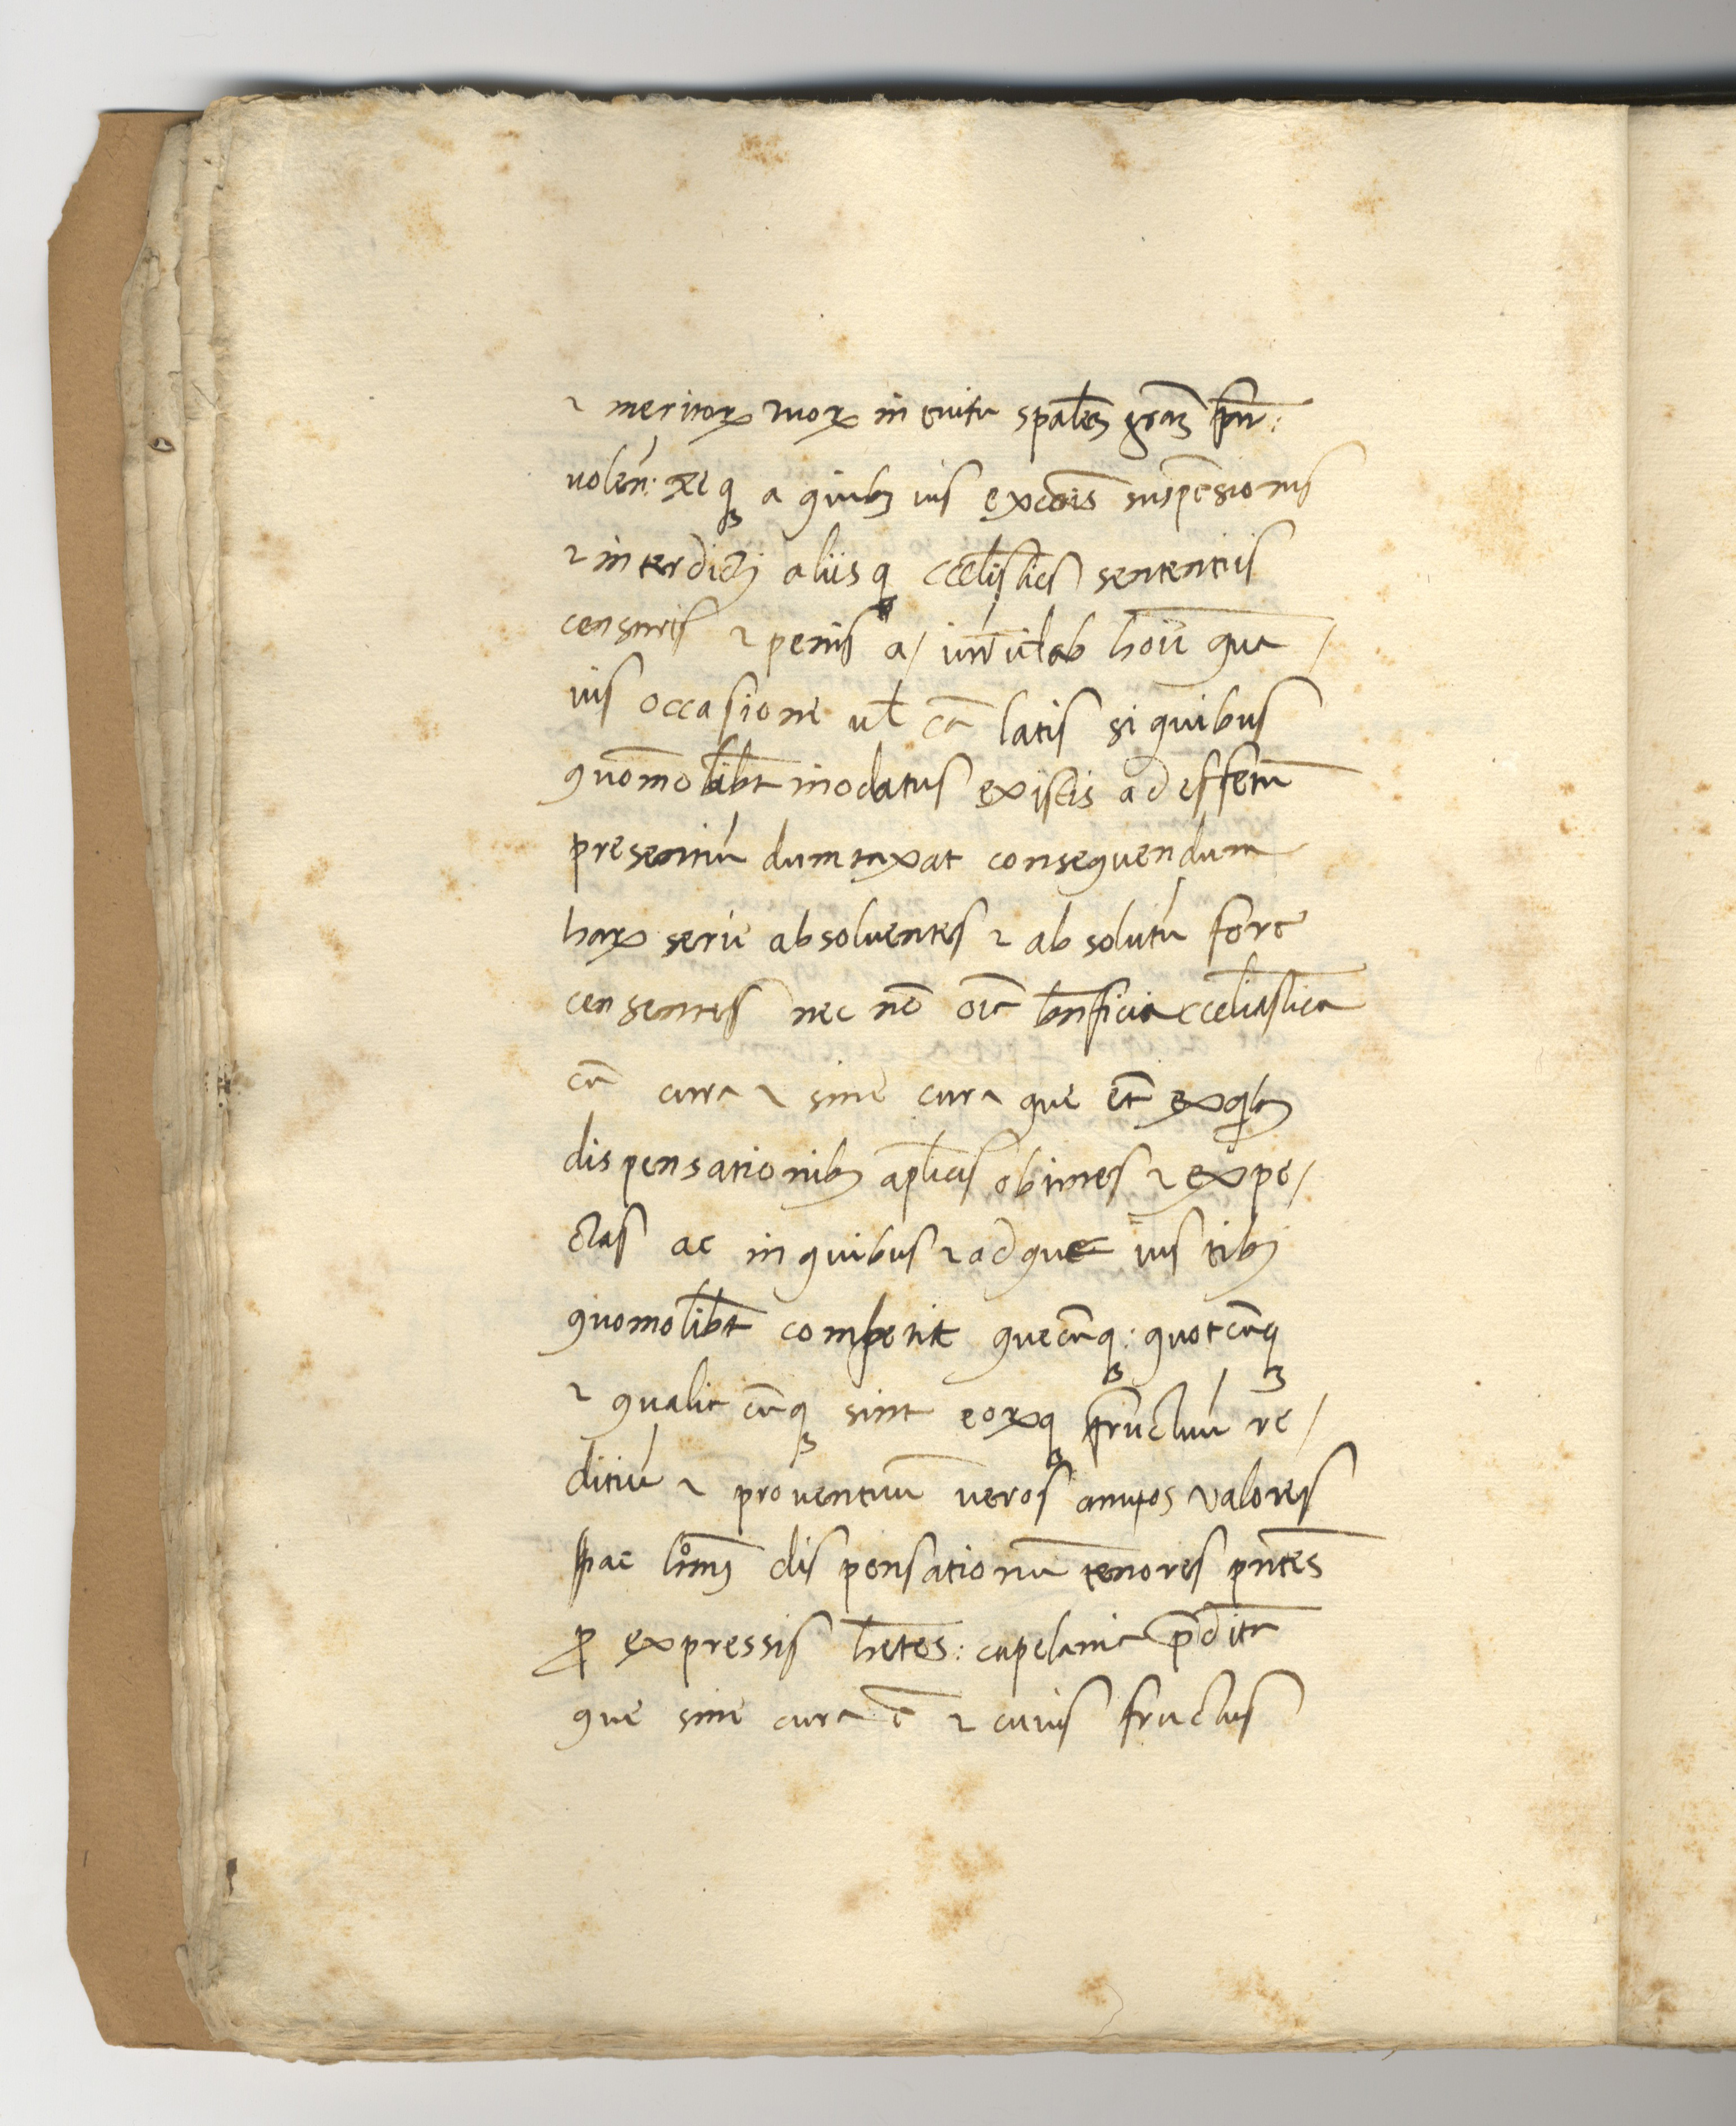 ⁊ meritoꝝ tuoꝝ intuitu spãlem grãm fac̃:
volen̄: teqꝫ a quibꝫvis excõis suspẽsionis
⁊ interdicti aliisqꝫ eccl̃isticis sententiis
censuris ⁊ penis a/ iure vl̃ ab hoĩe qua/
vis occasione vl̃ cã latis si quibus
quõmolibt̃ inodatus existis ad effectũ
presentiũ dumtaxat consequendum
haꝝ serie absolventes ⁊ absolutũ fore
censentes nec nõ oĩa bñficia eccl̃iastica
cũ cura ⁊ sine cura que et̃ ex qbꝫvis
dispensationibꝫ aplicis obtines ⁊ expe/
ctas ac in quibus ⁊ ad que ius tibi
quomolibt̃ competit quecũqꝫ: quotcũqꝫ
⁊ qualiacũqꝫ sint eoꝝqꝫ fructuũ re/
dituũ ⁊ proventuũ veros annuos valores
ac hmõi dispensationũ tenores pñtes
ꝓ expressis hñtes: capelania p̃dicta
que sine cura ẽ ⁊ cuius fructus